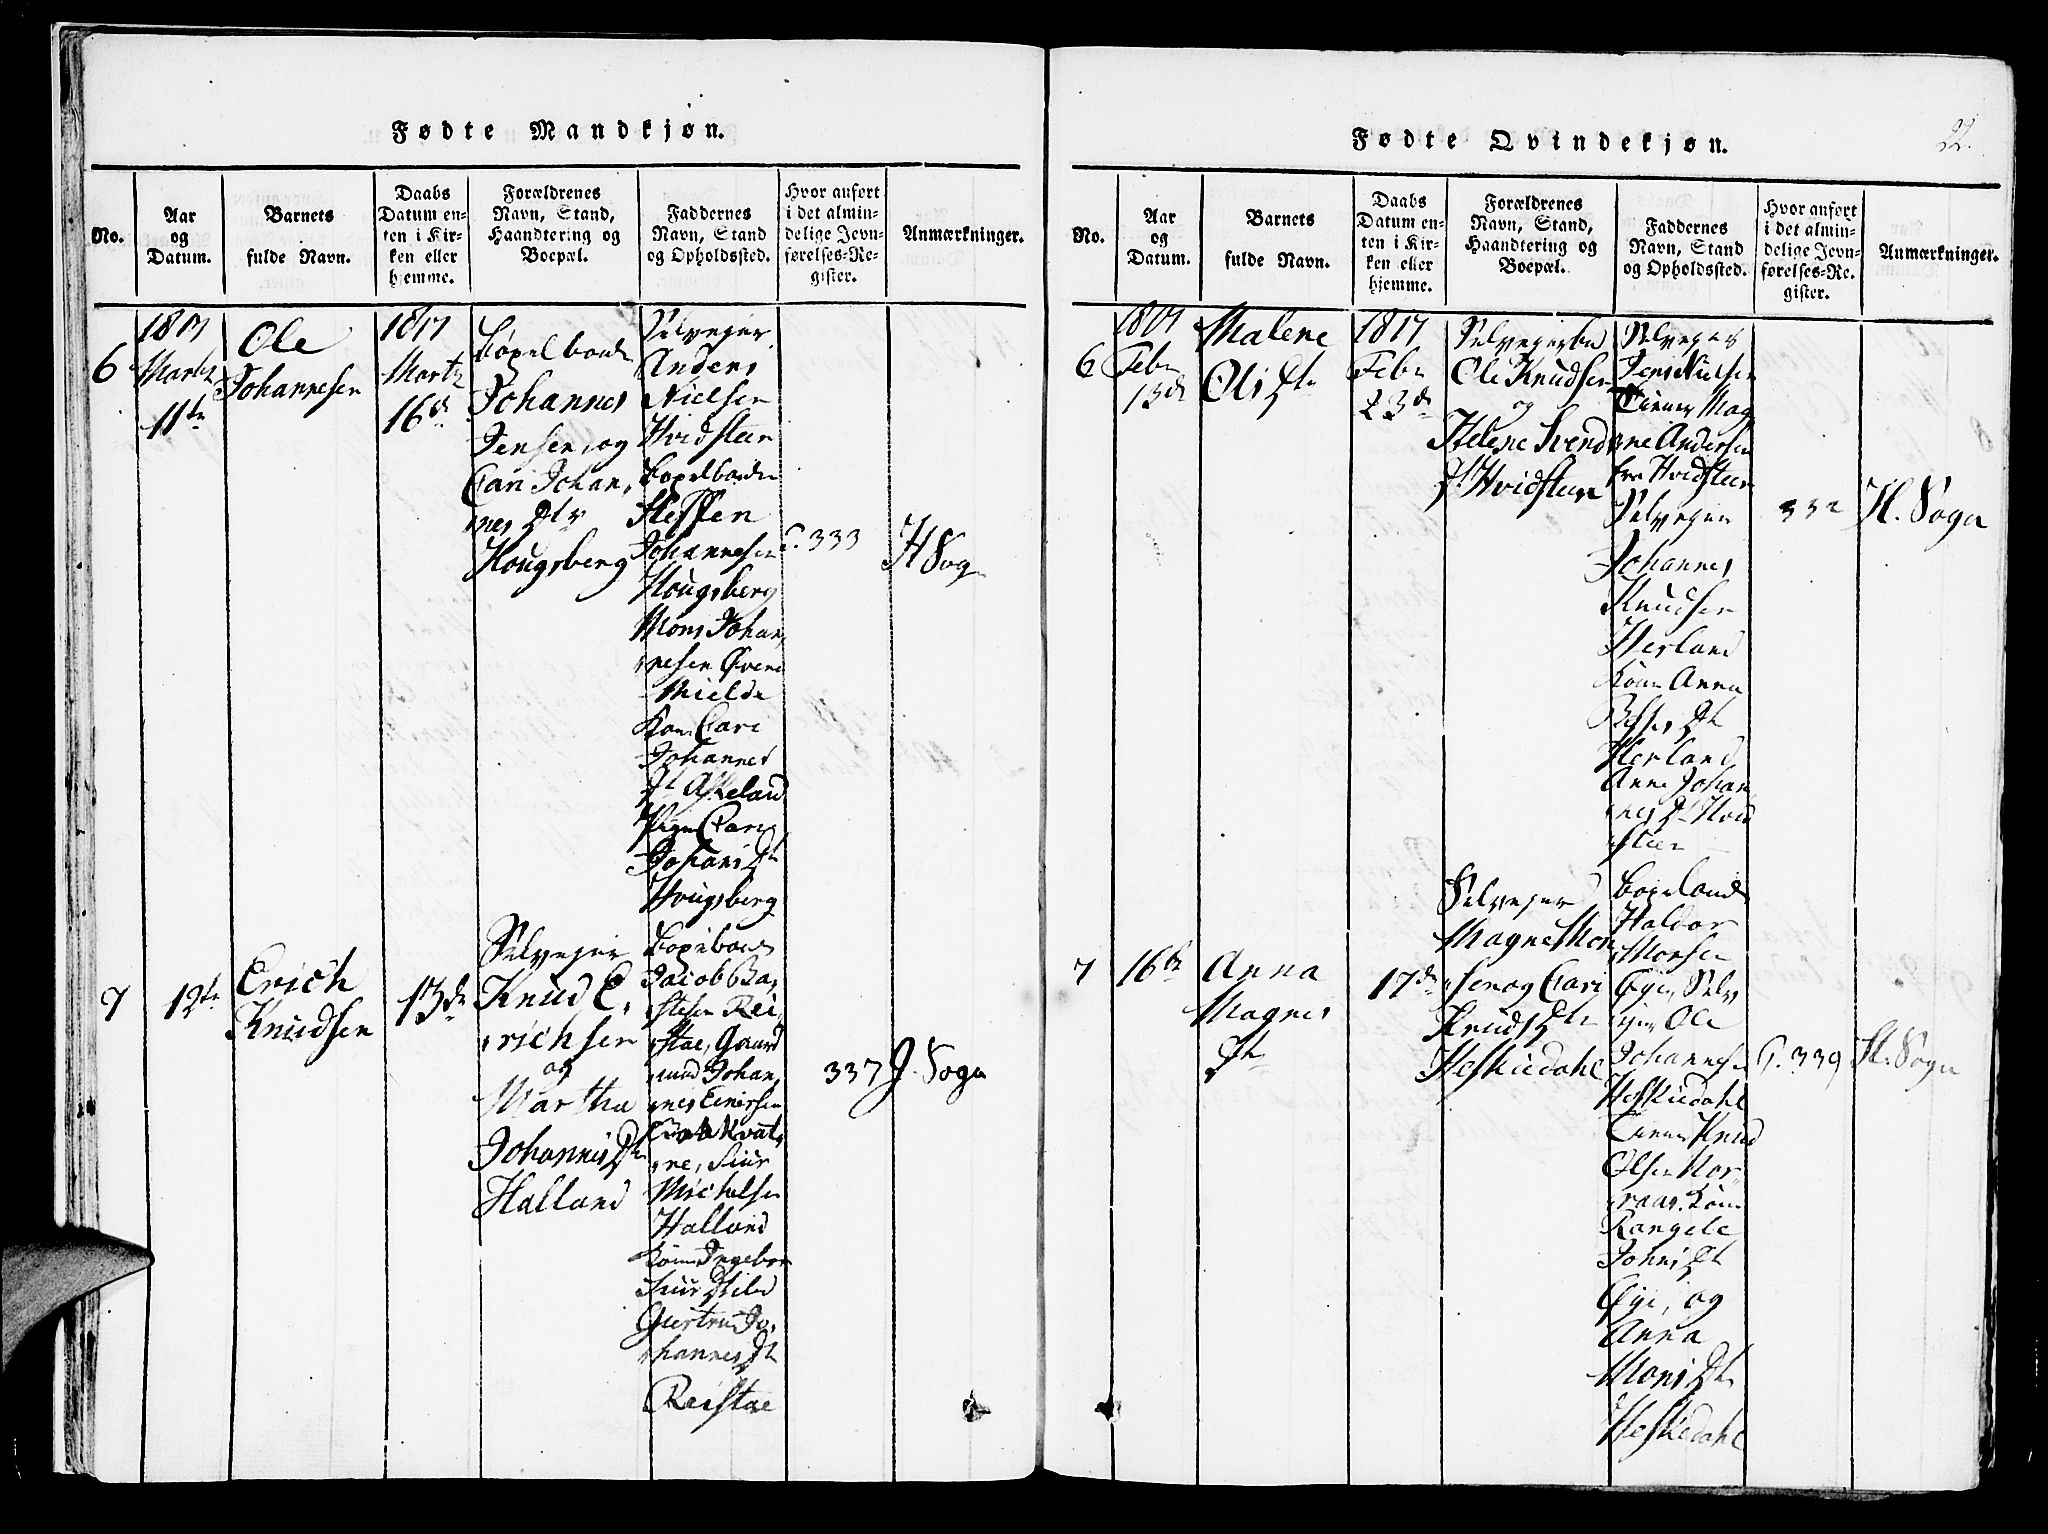 Fødte Mandkjøn.
No.
Aar
og
Datum.
Barnets
fulde Navn.
Daabs
Datum en-
ten i Kir-
ken eller
hjemme.
Forældrenes
Navn, Stand,
Haandtering og
Boepæl.
Faddernes
Navn, Stand
og Opholdssted.
Hvor anført
i det almin-
delige Jevn-
førelses-Re-
gister.
Anmærkninger.
6
1817
Martz
11te
Ole
Johannesen
1817
Martz
16de
Johannes
Jensen og
Cari Johan,
nes Dtr
Hougsberg
Selvejer
Anders
Nielsen
Hvidsteen
Steffen
Johannesen
Hougsberg
Mons Johan,
nesen Øvre
Mielde
Kone Cari
Johannes
Dt Askeland
Pige Cari
Johans Dt
Hougsberg
333
H Sogn
7
12te
Erich
Knudsen
13de
Selvejer
Knud E,
richsen
og
Martha
Johannis Dtr
Halland
Jacob Ba,
stesen Rei,
stae, Gaard
mand Johan,
nes
ne, Siur
Michelsen
Halland
Kone Ingebor
Siurs Dt ibd
Giertru Jo,
hannes Dt
Reistae
337
J. Sogn
Fødte Qvindekjøn.
22.
No.
Aar
og
Datum.
Barnets
fulde Navn.
Daabs
Datum en-
ten i Kir-
ken eller
hjemme.
Forældrenes
Navn, Stand,
Haandtering og
Boepæl.
Faddernes
Navn, Stand
og Opholdssted.
Hvor anført
i det almin-
delige Jevn-
førelses-Re-
gister.
Anmærkninger.
6
1817
Febr
13de
Malene
Ols Dtr
1817
Febr
23de
Ole Knudsen
og
Helene Svends
Dt Hvidsteen
Selvejer
Jens Nielsen
Tiener Mag
ne Andersen
fra Hvidsteen
Selvejer
Johannes
Knudsen
Herland
Kone Anna
Dt
Herland
Anne Johan
nes Dt Hvid
steen
332
H. Sogn
7
16de
Anna
Magnes
Dtr
17de
Selvejer
Magne Mon
sen og Cari
Knuds Dtr
Heskiedahl
Haldor
Monsen
Øye, Selv
ejer Ole
Johannesen
Heskiedahl
Tiener Knud
Olsen Nor
raas. Kone
Rangele
Johns Dt
Øye, og
Anna
Mons Dtr
Heskedahl
339
H. Sogn